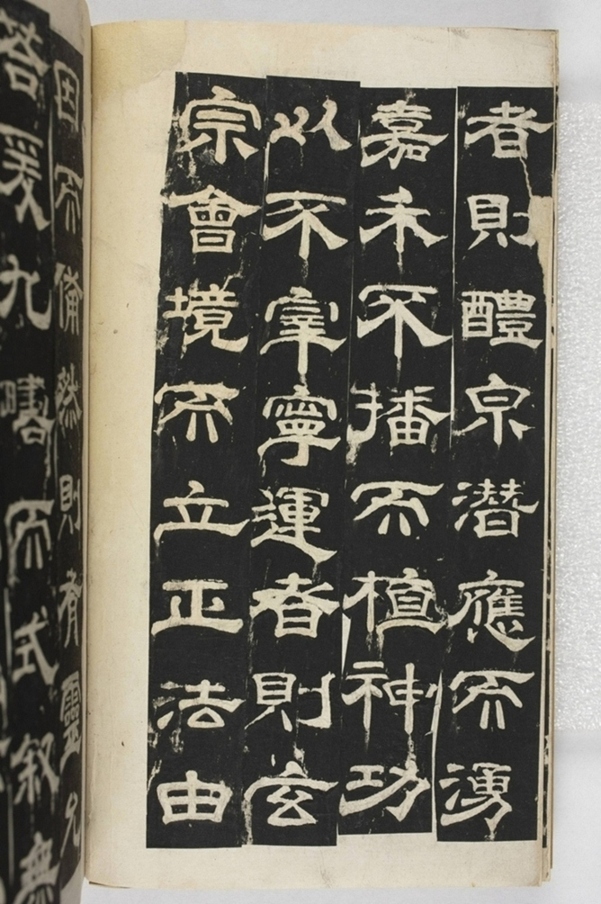 者則醴泉潜應而湧
嘉禾不播而植神功
以不宰寧運者則玄
宗會境而立正法由
因而備然則有靈允
爰九疇而式叙無